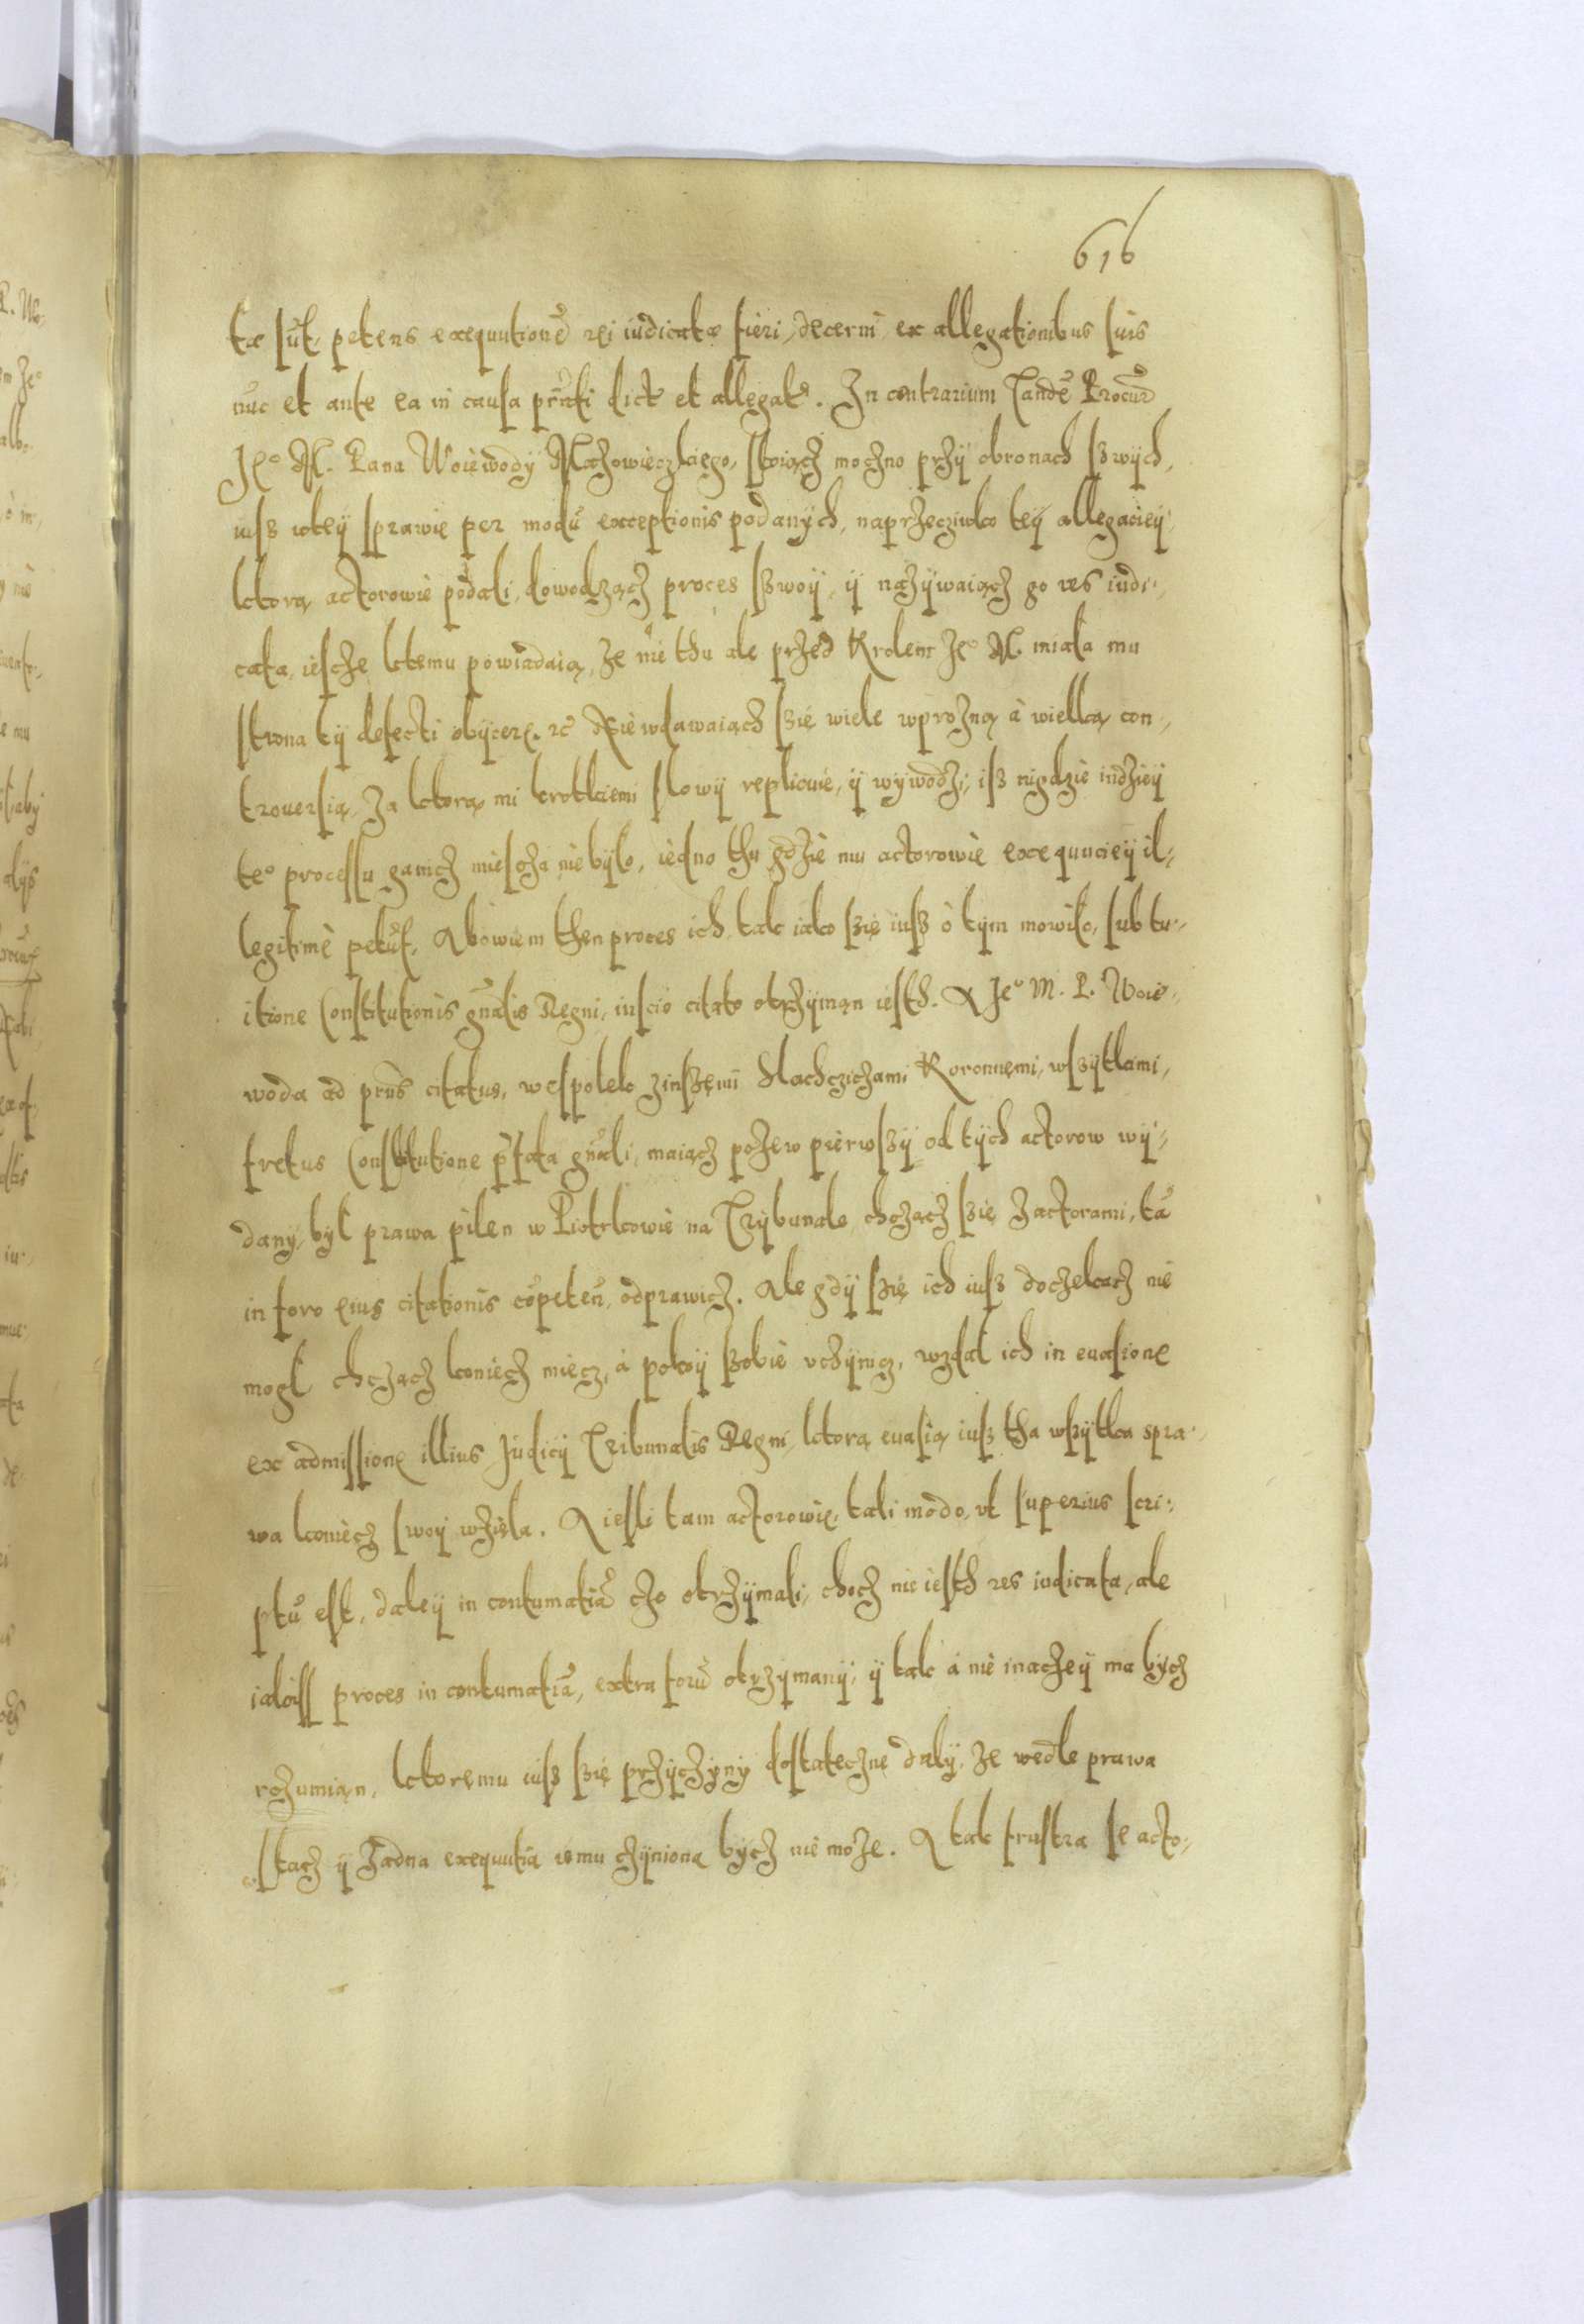 616
tæ sūt, petens exequutionē rei iudicatæ fieri, decerni, ex allegationibus suis
nūc et ante ea in causa pr̄nti dict. et allegat. In contrarium Tandē Procur
Je° M. Pana Woiewody Mazowieczkiego, stoiącz moczno przÿ obronach szwÿch,
iusz wteÿ sprawie per modū exceptionis podanÿch, naprzecziwko teÿ allegacieÿ
ktorą actorowie podali, dowodzącz proces szwoÿ, ÿ nazÿwaiącz go res iudi„
cata, iescze ktemu powiadaią, ze nie thu ale przed Krolem Je° M. miała mu
strona tÿ defecti obÿcere. etc Nie wdawaiącz szie wiele wprozną à wielką con„
trouersią, za ktorą mi krotkiemi słowÿ replicuie, ÿ wÿwodzi, isz nigdzie indzieÿ
te° processu ganicz miescza niebÿło, iedno thu gdzie mu actorowie exequucieÿ il„
legitimè petūt. Abowiem then proces ich, tak iako szie iusz o tÿm mowiło, sub tu„
itione Constitutionis gn̄alis Regni, inscio citato otrzÿman iesth. A Je° M. P. Woie„
woda ad pr̄ns citatus, wespołek zinszemi slachczichami Koronnemi, wszÿtkami,
fretus Constitutione p̄fata gn̄ali, maiącz pozew pierwszÿ od tÿch actorow wÿ„
danÿ, bÿł prawa pilen w Piotrkowie na Trÿbunale, chcząc szie zactorami, tā
in foro eius citationis cōpeten, odprawicz. Ale gdÿ szie ich iusz doczekacz nie
mogł chcząc koniecz miecz, à pokoÿ szobie vczÿnicz, wzdał ich in euasione
ex admissione illius Judicÿ Tribunalis Regni, ktorą euasią iusz tha wszÿtka spra„
wa koniecz swoÿ wzięła. A iesli tam actorowie, tali modo, vt superius scri„
ptū est, daleÿ in contumatiā czo otrzÿmali, chocz nie iesth res iudicata, ale
iakiss proces in contumatiā, extra forū otrzÿmanÿ, ÿ tak à nie inaczeÿ ma bÿcz
rozumian, ktoremu iusz szie przÿczÿnÿ dostateczne dałÿ, ze wedle prawa
stacz ÿ zadna exequutia iemu czÿniona bÿcz nie może. A tak frustra se acto„